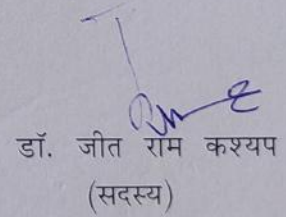 डॉ. जीत राम कश्यप
(सदस्य)